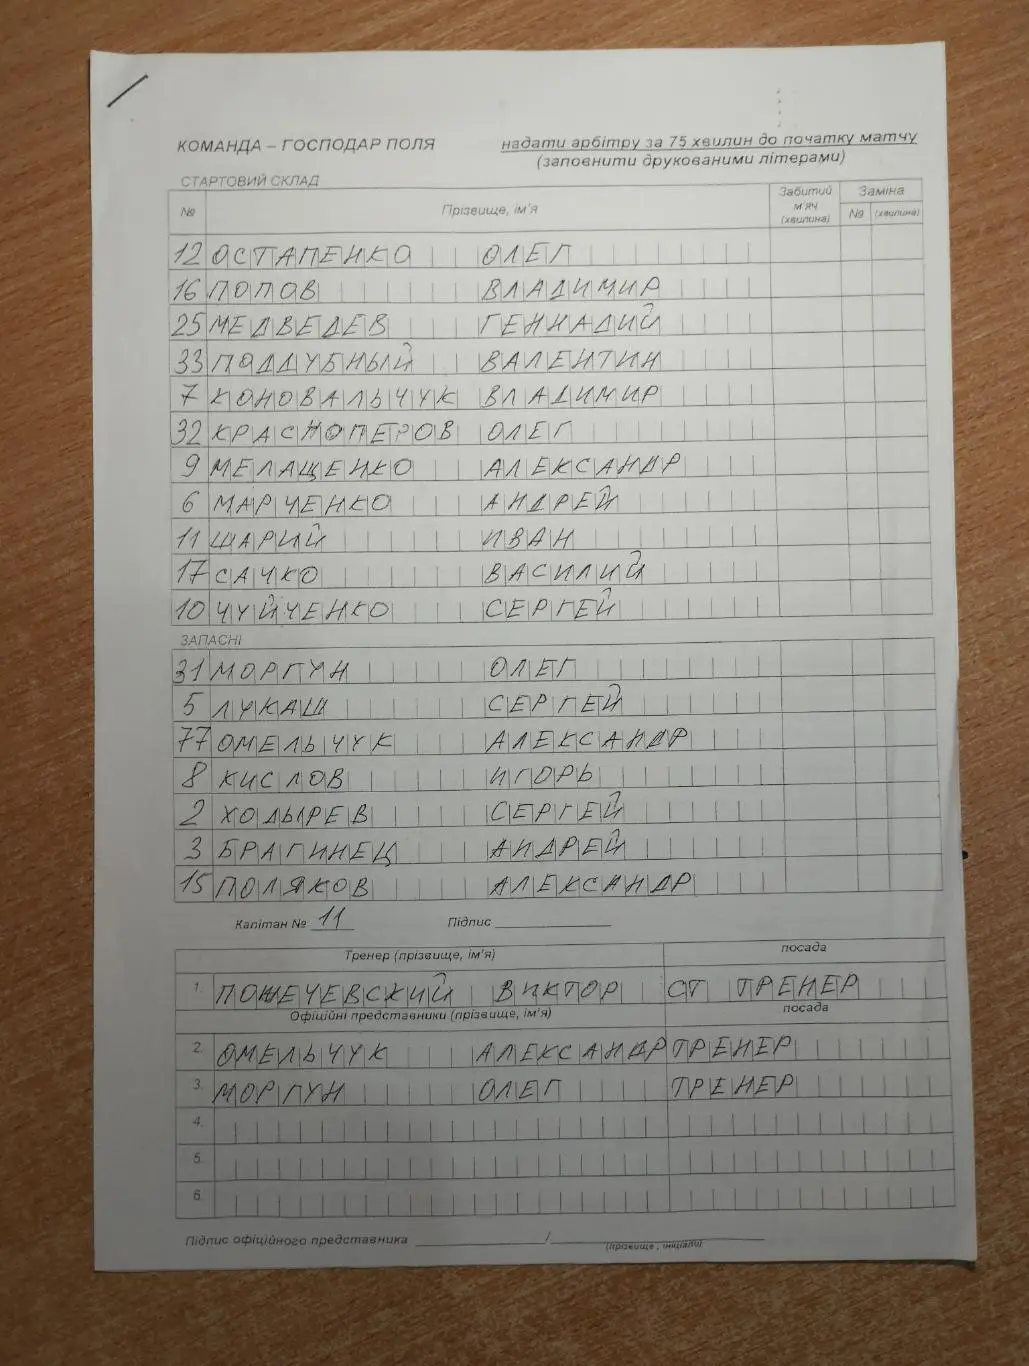 КОМАНДА – ГОСПОДАР ПОЛЯ надати арбітру за 75 хвилин до початку матчу
(заповнити друкованими літерами)
СТАРТОВИЙ СКЛАД
№ Прізвище, ім'я Забитий м'яч (хвилина) Заміна № (хвилина)
12 ОСТАПЕНКО ОЛЕГ
16 ПОПОВ ВЛАДИМИР
25 МЕДВЕДЕВ ГЕННАДИЙ
33 ПОДДУБНЫЙ ВАЛЕНТИН
7 КОНОВАЛЬЧУК ВЛАДИМИР
32 КРАСНОПЕРОВ ОЛЕГ
9 МЕЛАЩЕНКО АЛЕКСАНДР
6 МАРЧЕНКО АНДРЕЙ
11 ШАРИЙ ИВАН
17 САЧКО ВАСИЛИЙ
10 ЧУЙЧЕНКО СЕРГЕЙ
ЗАПАСНІ
31 МОРГУН ОЛЕГ
5 ЛУКАШ СЕРГЕЙ
77 ОМЕЛЬЧУК АЛЕКСАНДР
8 КИСЛОВ ИГОРЬ
2 ХОДЫРЕВ СЕРГЕЙ
3 БРАГИНЕЦ АНДРЕЙ
15 ПОЛЯКОВ АЛЕКСАНДР
Капітан № 11 Підпис
Тренер (прізвище, ім'я) посада
1. ПОЖЕЧЕВСКИЙ ВИКТОР СТ ТРЕНЕР
Офіційні представники (прізвище, ім'я) посада
2. ОМЕЛЬЧУК АЛЕКСАНДР ТРЕНЕР
3. МОРГУН ОЛЕГ ТРЕНЕР
4.
5.
6.
Підпис офіційного представника /
(прізвище, ініціали)